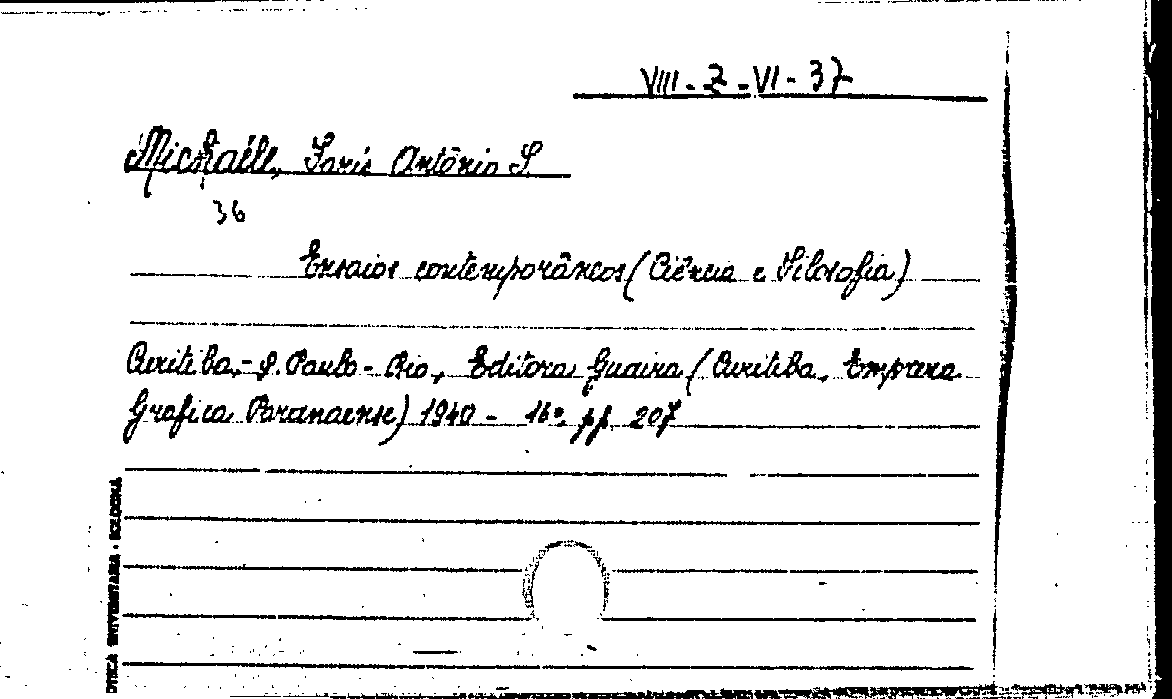 VIII - Z - VI - 37
Michaéle, Faris Antônio S.
36
Ensaios contemporâneos (Ciência e Filosofia)
Curitiba, - S. Paulo - Rio, Editora Guaira (Curitiba, Empresa
Grafica Paranaense) 1940 - 16º, pp. 207
UNIVERSITARIA - BOLOGNA